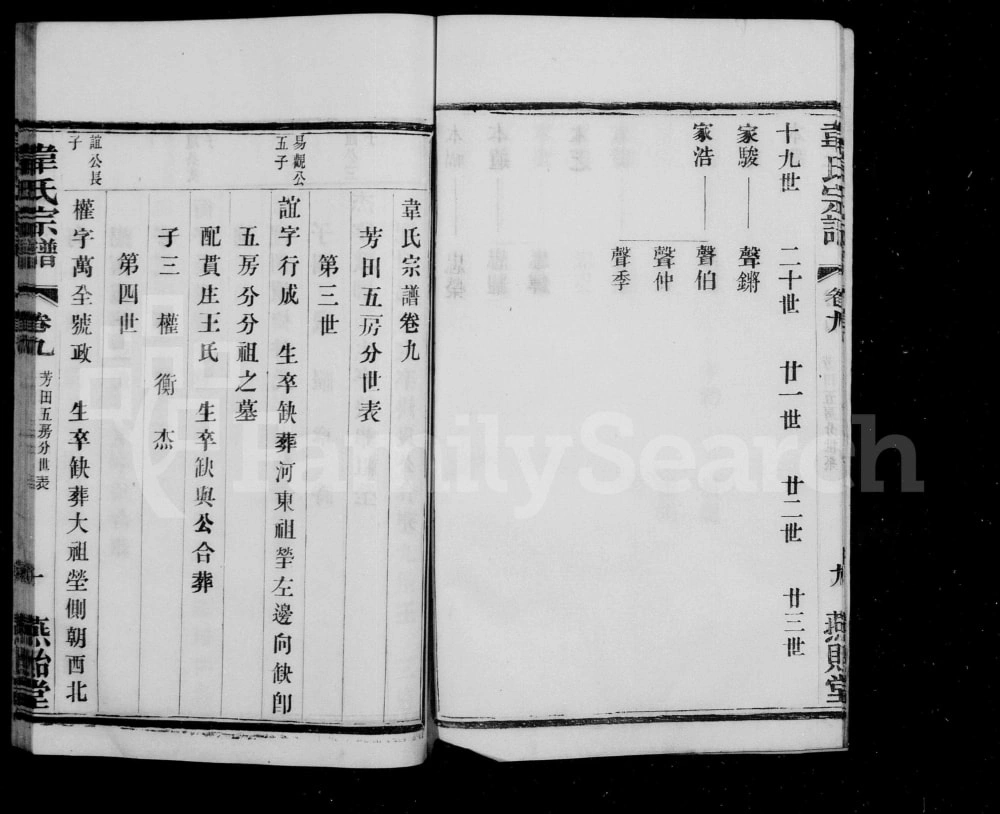 韋氏宗譜
卷九
九
燕貽堂
十九世 二十世 廿一世 廿二世 廿三世
家駿 聲鏘
家浩 聲伯
聲仲
聲季
韋氏宗譜卷九
芳田五房分世表
第三世
易觀公五子
誼字行成 生卒缺葬河東祖塋左邊向缺卽
五房分分祖之墓
配貫庄王氏 生卒缺與公合葬
子三 權 衡 杰
第四世
誼公長子
權字萬全號政 生卒缺葬大祖塋側朝西北
韋氏宗譜
卷九
芳田五房分世表
一
燕貽堂
FamilySearch